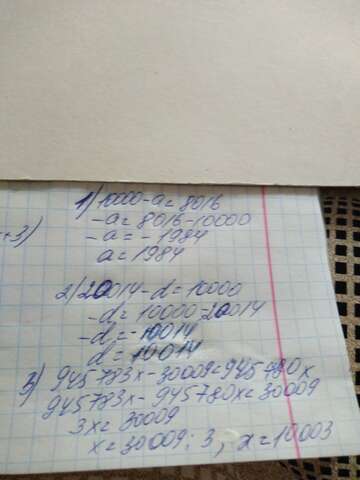 1) 10000-a=8016
-a=8016-10000
+3)
-a=-1984
a=1984
2) 20014-d=10000
-d=10000-20014
-d=-10014
d=10014
3) 945783x-30009=945780x
945783x-945780x=30009
3x=30009
x=30009:3, x=10003